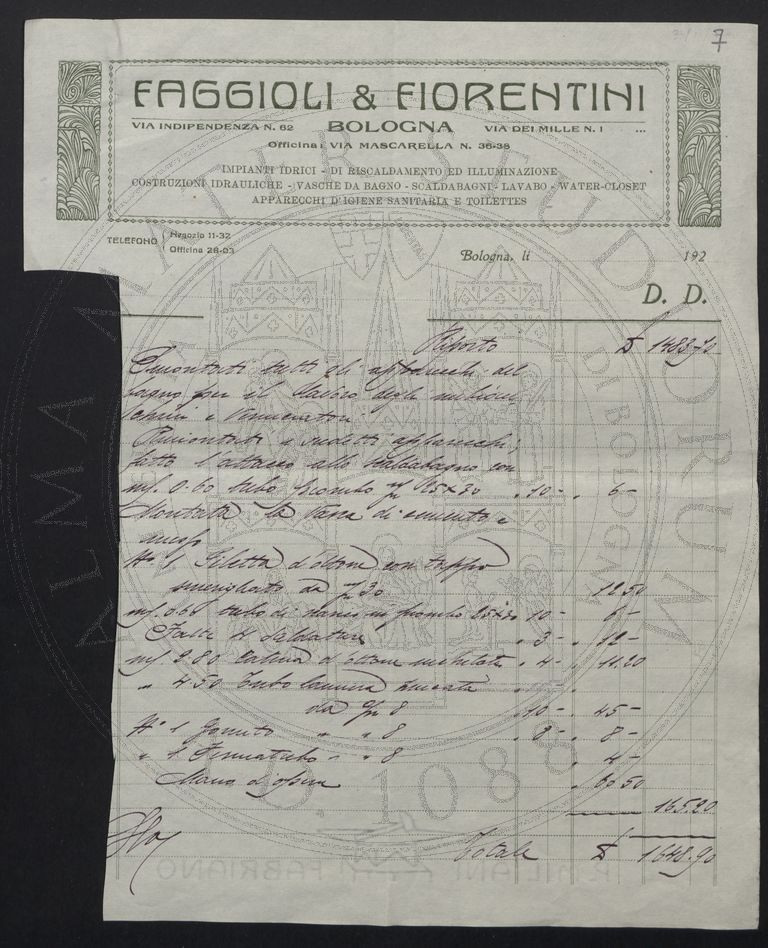 7
FAGGIOLI & FIORENTINI
VIA INDIPENDENZA N. 62 BOLOGNA VIA DEI MILLE N. 1 ...
Officina: VIA MASCARELLA N. 36-38
IMPIANTI IDRICI - DI RISCALDAMENTO ED ILLUMINAZIONE
COSTRUZIONI IDRAULICHE - VASCHE DA BAGNO - SCALDABAGNI - LAVABO - WATER-CLOSET
APPARECCHI D'IGIENE SANITARIA E TOILETTES
TELEFONO Negozio 11-32
Officina 28-03
Bologna, li 192
D. D.
Riporto £ 1483.70
Smontati tutti gli apparecchi del
bagno per il lavoro degli imbian
chini e Verniciatori
Rimontati i sudetti apparecchi;
fatto l'attacco allo scaldabagno con
ml. 0.60 tubo piombo 25x30 " 10 - " 6 -
Montata la Vasca di cemento e
N° 1 Piletta d'ottone con tappo
smerigliato da 30 12.50
ml. 0.60 tubo di scarico in piombo 25x30 10 - 6 -
Fatte 4 Saldature " 3 - " 12 -
ml. 2.80 Catena d'ottone nichelata " 4 - " 11.20
" 4.50 Tubo lamiera zincata
da 8 " 10 - " 45 -
N° 1 Gomito " " 8 " 8 - " 8 -
" 1 Fermatubo - " 8 " 4 -
Mano d'opera " 60.50
165.20
Totale £ 1648.90
ALMA MATER STUDIORUM
DI BOLOGNA
A.D. 1088
MILIANI FABRIANO